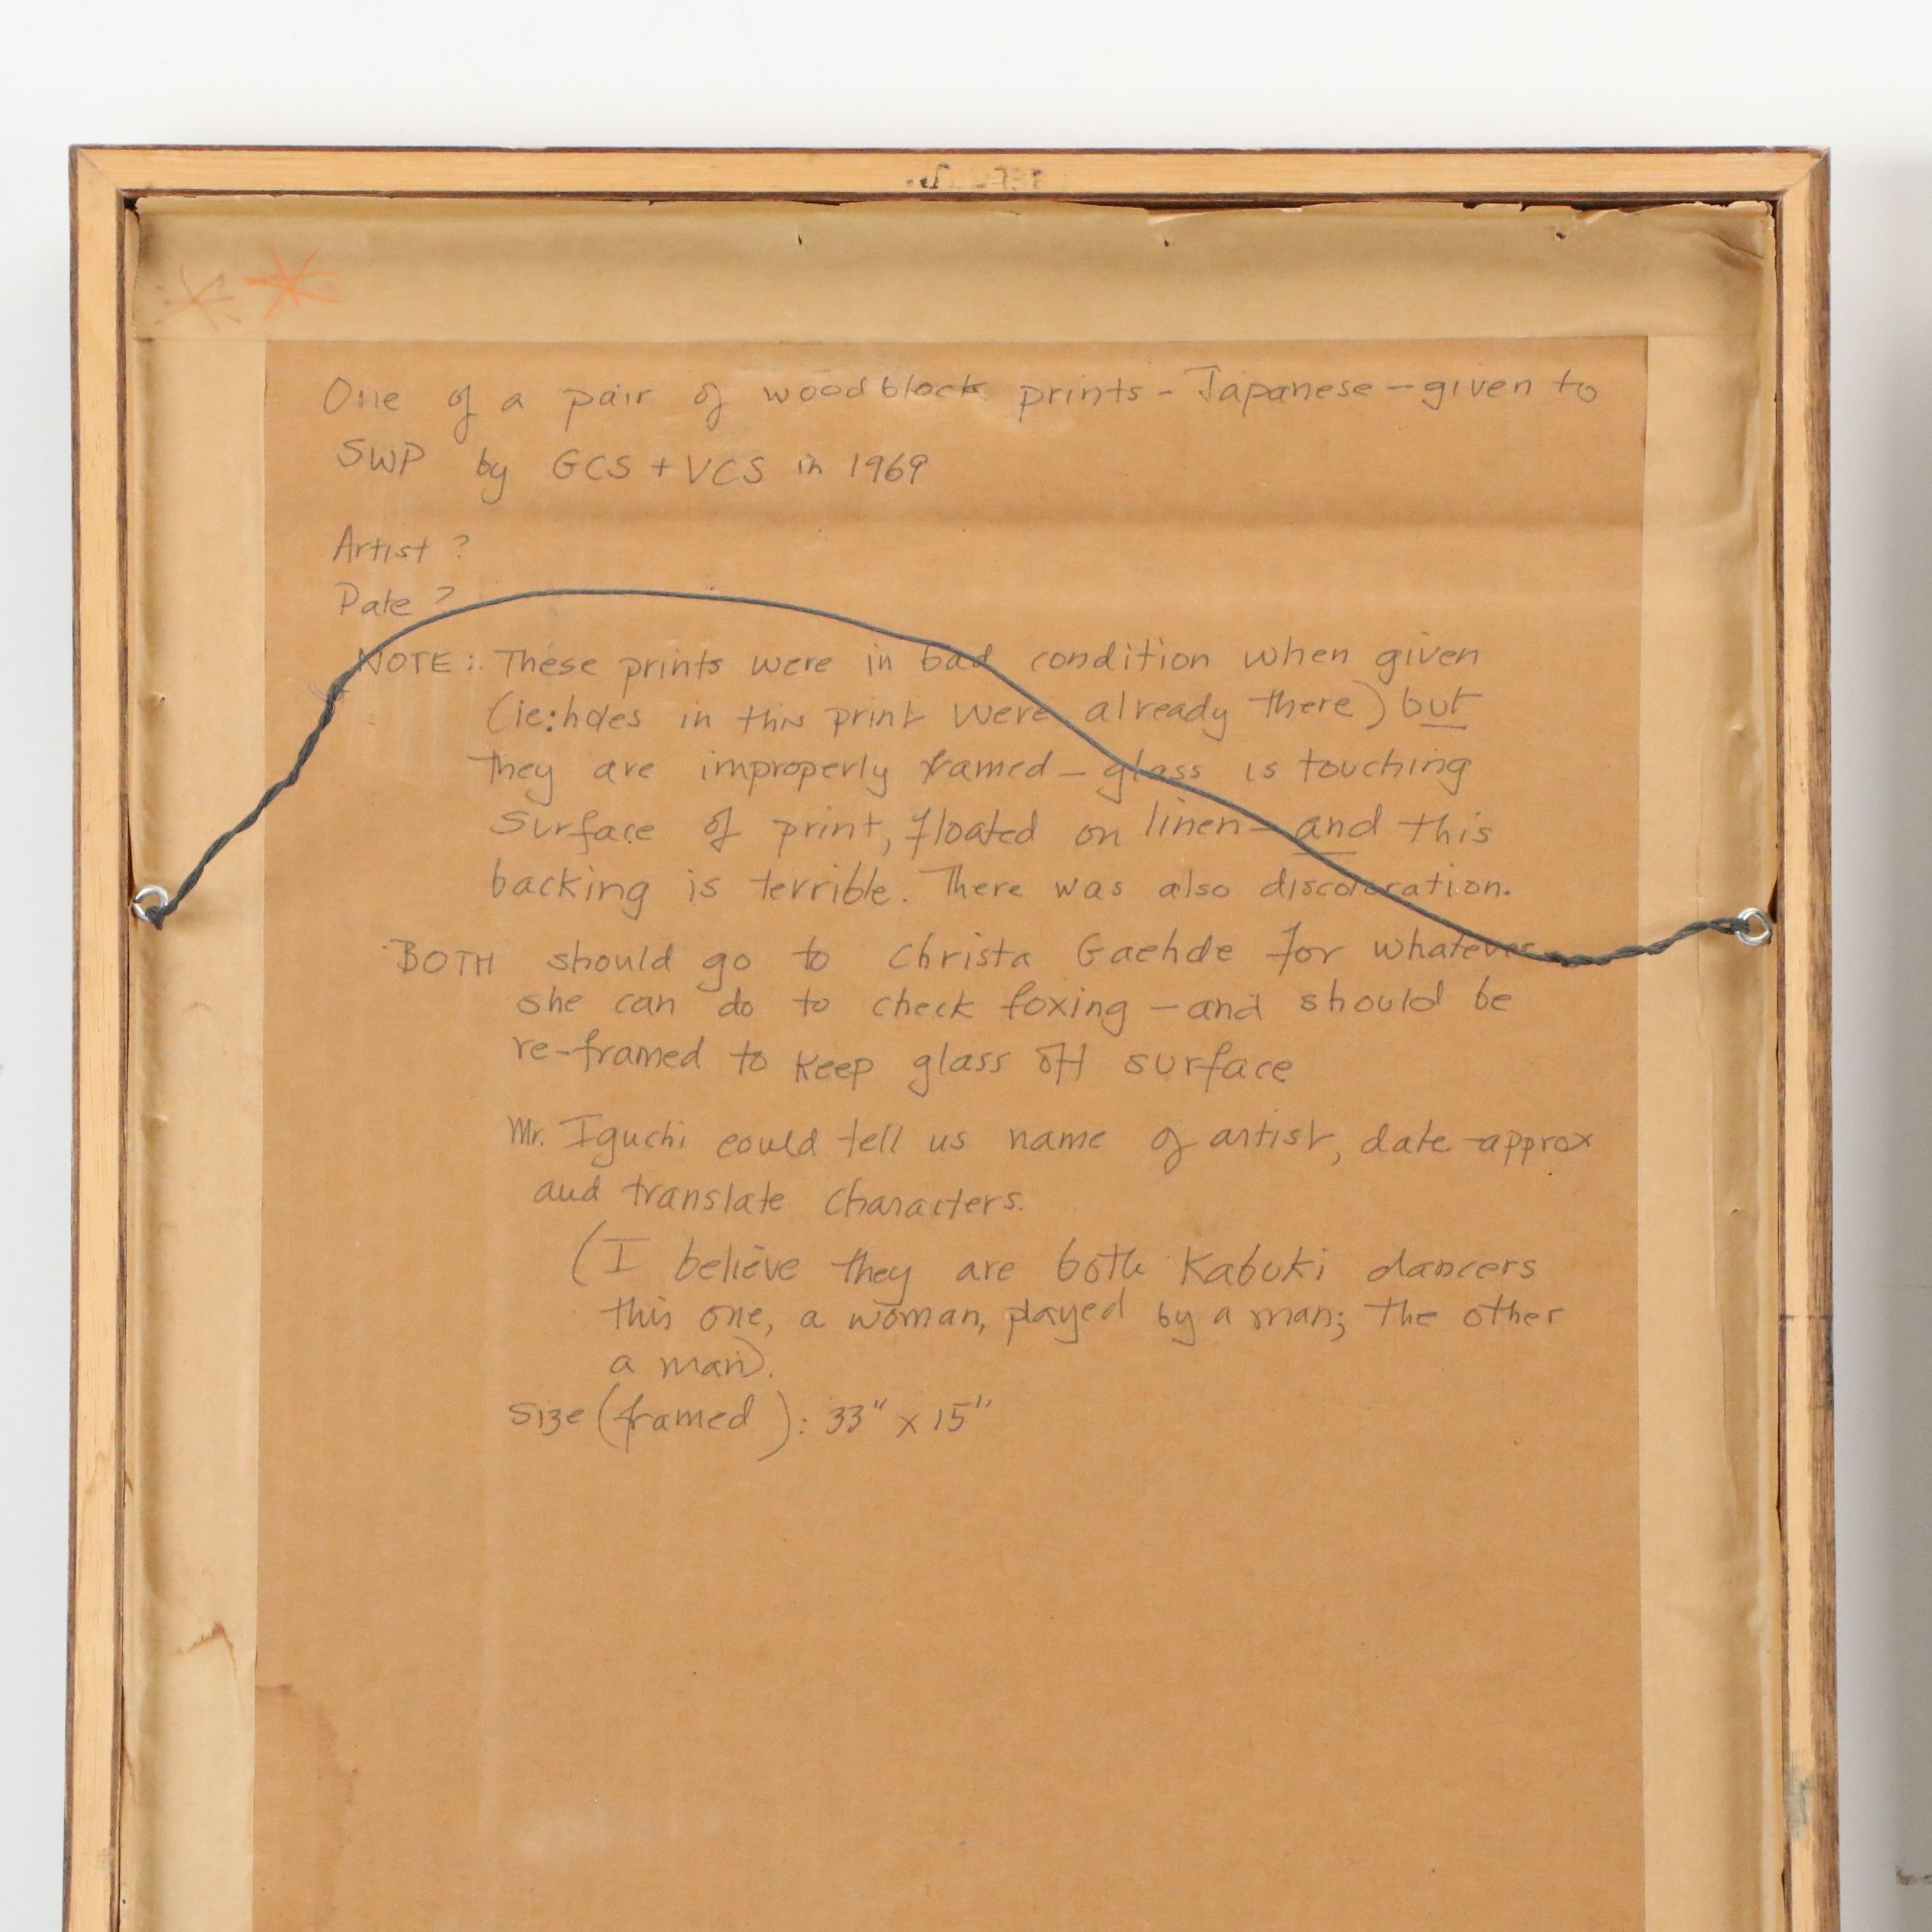 One of a pair of woodblock prints - Japanese - given to
SWP by GCS + VCS in 1969
Artist ?
Date ?
NOTE: These prints were in bad condition when given
(ie: holes in this print were already there) but
they are improperly framed - glass is touching
surface of print, floated on linen - and this
backing is terrible. There was also discoloration.
BOTH should go to Christa Gaehde for whatever
she can do to check foxing - and should be
re-framed to keep glass off surface
Mr. Iguchi could tell us name of artist, date approx
and translate characters.
(I believe they are both Kabuki dancers
this one, a woman, played by a man; the other
a man).
Size (framed): 33" x 15"